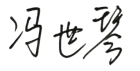 冯世琴